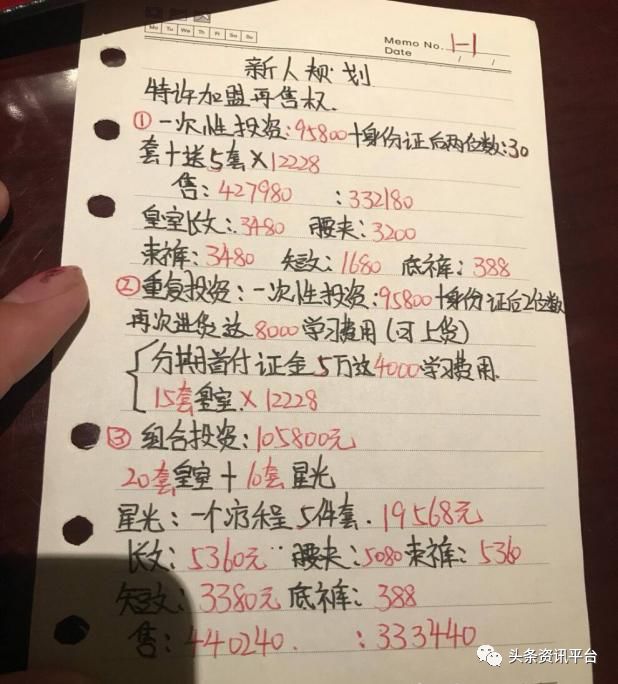 Mo Tu We Th Fr Sa Su
Memo No. 1-1
Date / /
新人规划
特许加盟再售权.
① 一次性投资:95800+身份证后两位数:30
套+送5套×12228
售:427980 :332180
皇室长文:3480 腰夹:3200
束裤:3480 短文:1680 底裤:388
②重复投资:一次性投资:95800+身份证后2位数
再次进货送8000学习费用(可上货)
分期首付证金5万送4000学习费用.
15套皇室×12228
③ 组合投资:105800元
20套皇室+10套星光
星光:一个疗程5件套.19568元
长文:5360元 腰夹:5080束裤:5360
短文:3380元 底裤:388
售:440240. :333440
头条资讯平台